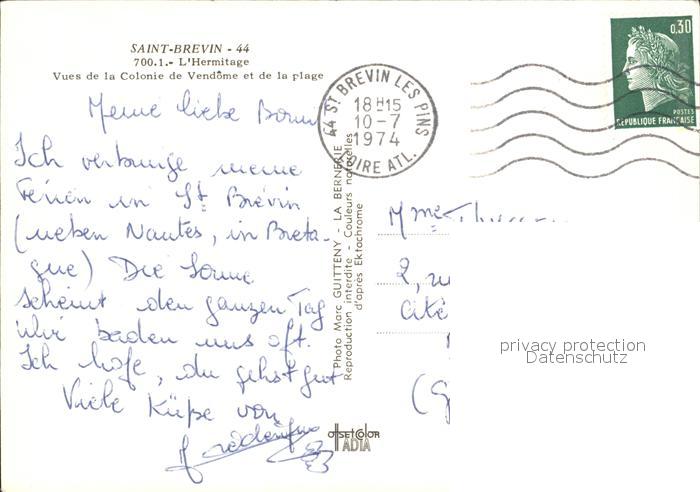 SAINT-BREVIN - 44
700.1.- L'Hermitage
Vues de la Colonie de Vendôme et de la plage
Meine liebe
Ich verbringe meine
Ferien in St Brévin
(neben Nantes, in Breta-
gne) Die Sonne
scheint den ganzen Tag
Wir baden uns oft.
Ich hoffe, du gehst gut
Viele Küße von
44 ST BREVIN LES PINS
18H15
10-7
1974
LOIRE ATL.
0,30
POSTES
REPUBLIQUE FRANÇAISE
Photo Marc GUITTENY - LA BERNERIE
Reproduction interdite - Couleurs naturelles
d'après Ektachrome
offset color
IADIA
Mme
2,
Cité
(G
privacy protection
Datenschutz